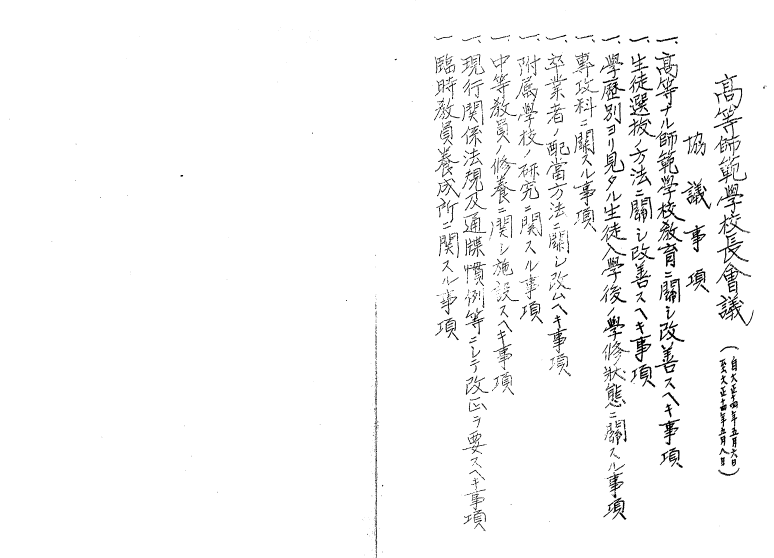 高等師範學校長會議
(自大正十四年五月六日
至大正十四年五月八日)
協議事項
一、高等ナル師範學校教育ニ關シ改善スヘキ事項
一、生徒選拔ノ方法ニ關シ改善スヘキ事項
一、學歷別ヨリ見タル生徒入學後ノ學修狀態ニ關スル事項
一、專攻科ニ関スル事項
一、卒業者ノ配當方法ニ関シ改ムヘキ事項
一、附属學校ノ研究ニ関スル事項
一、中等教員ノ修養ニ関シ施設スヘキ事項
一、現行関係法規及通牒慣例等ニシテ改正ヲ要スヘキ事項
一、臨時教員養成所ニ関スル事項